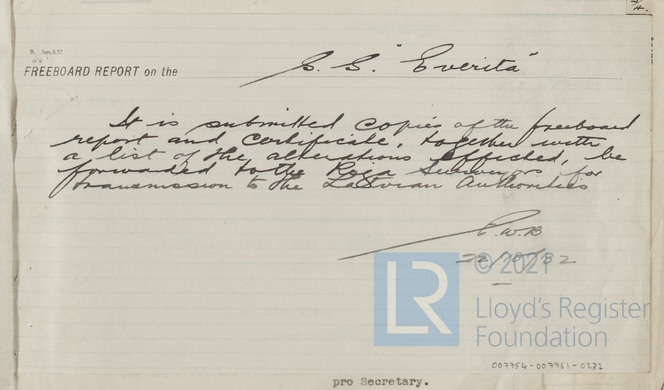 FREEBOARD REPORT on the S.S. "Everita"
It is submitted copies of the freeboard
report and certificate, together with
a list of the alterations effected, be
forwarded to the Riga Surveyors for
transmission to the Latvian Authorities
P.W.B
22/10/32
© 2021
LR
Lloyd's Register
Foundation
007754-007761-0222
pro Secretary.